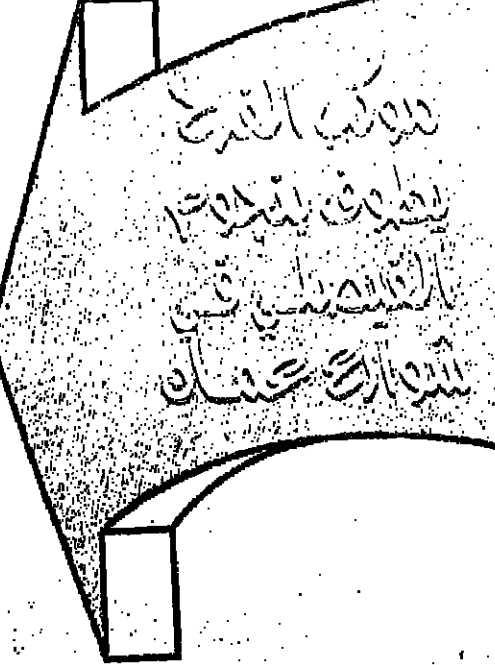 موكب الدرع
يطوف بنجوم
الفيصلي في
شوارع عمان